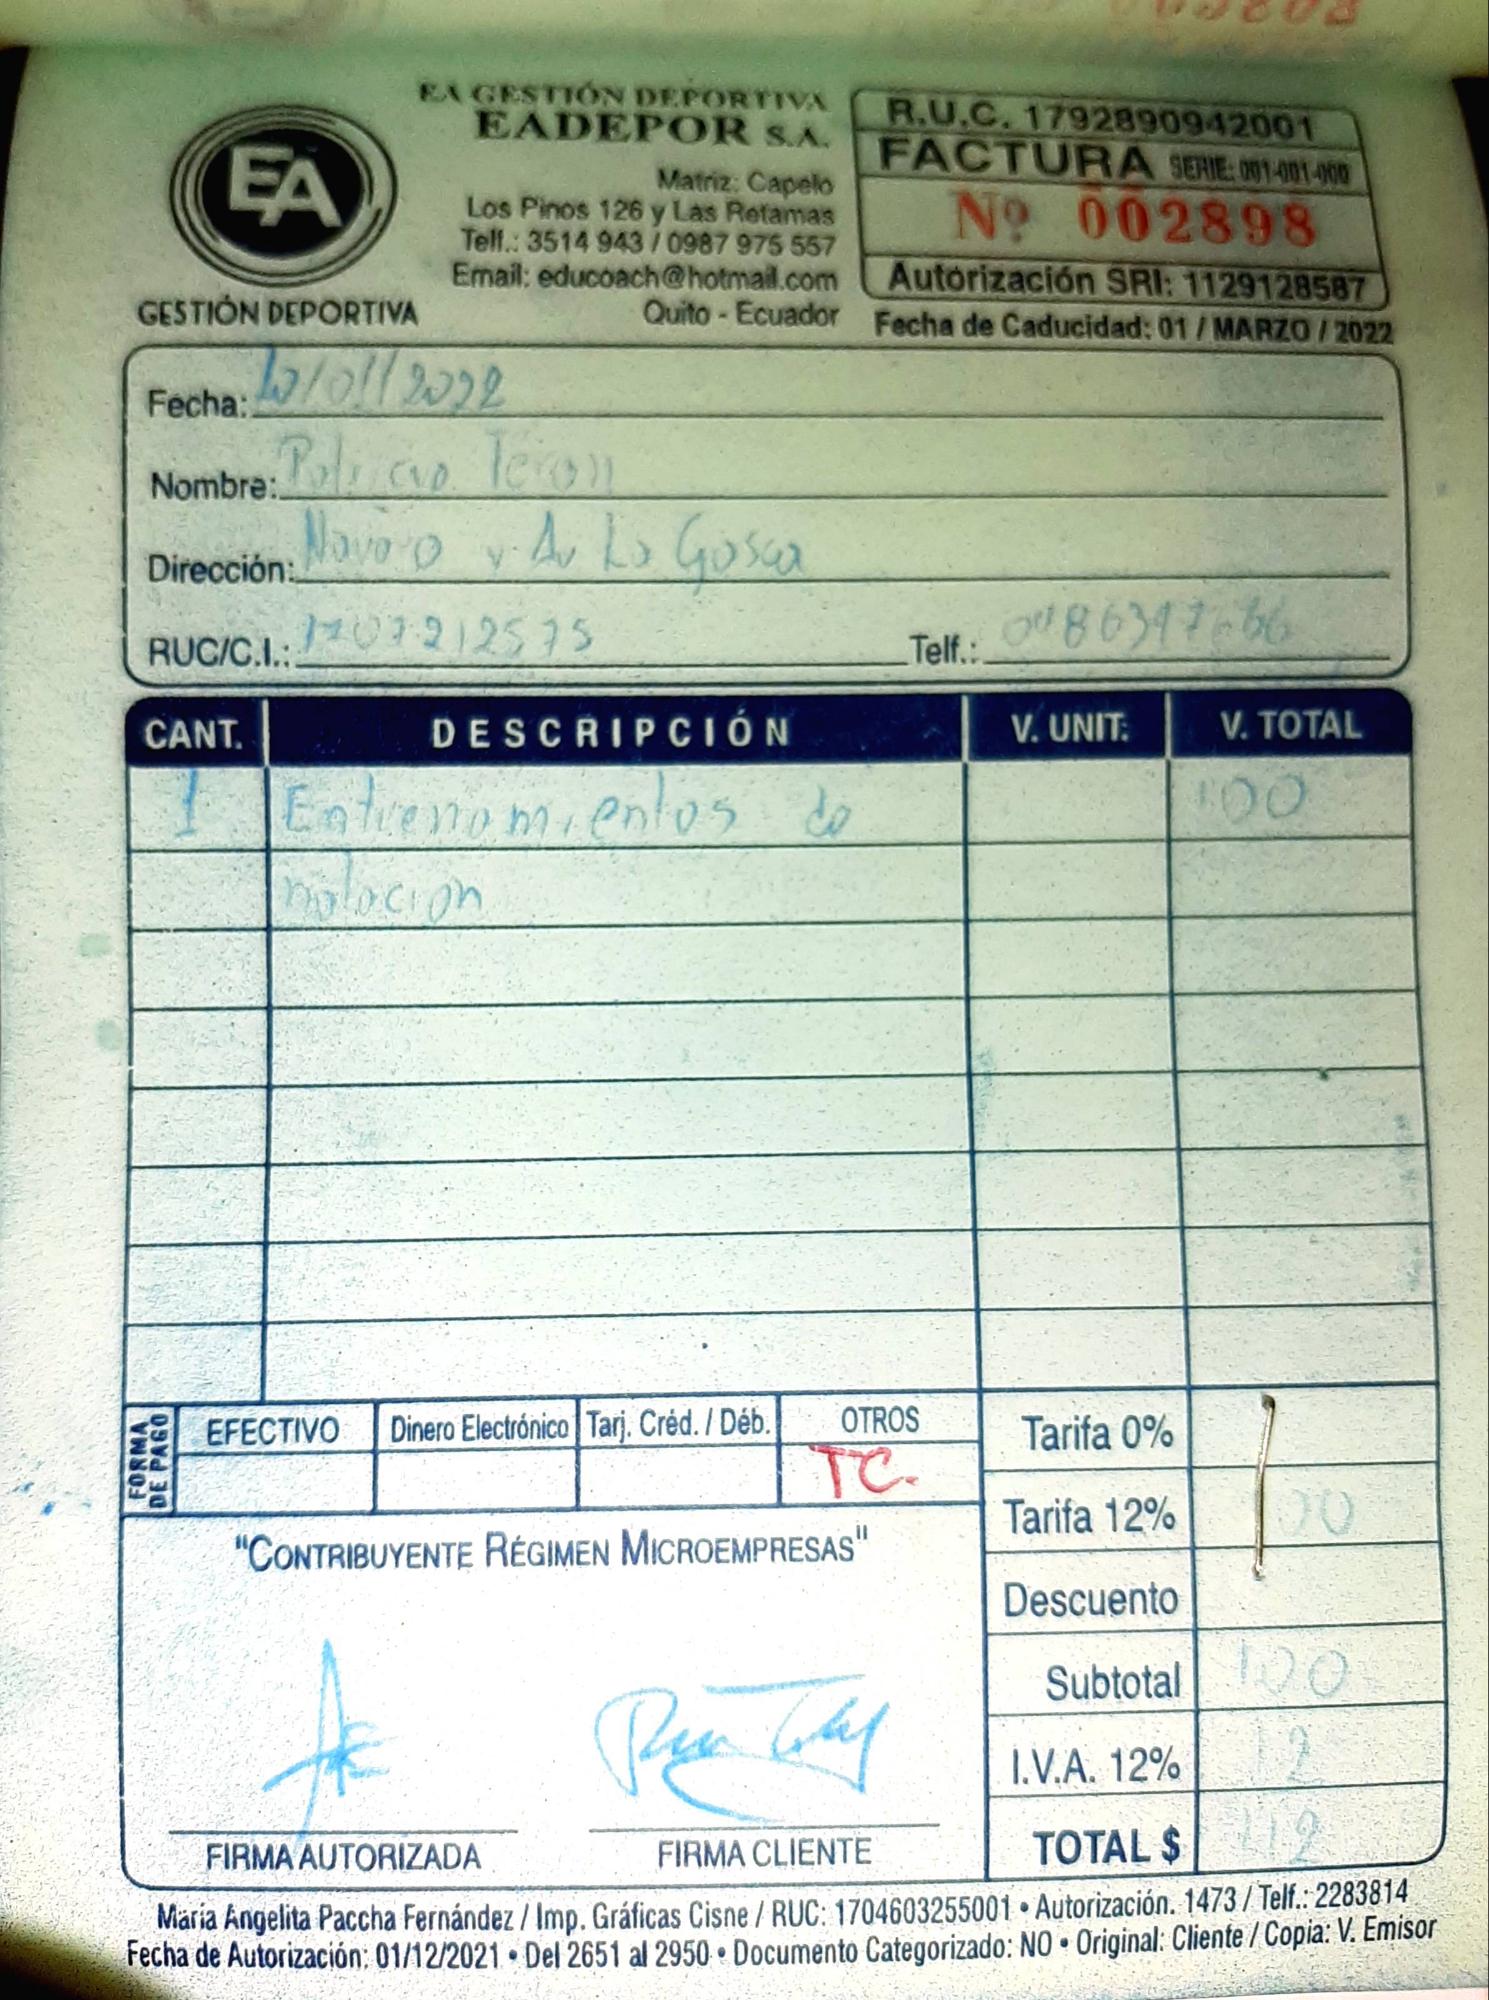 EA GESTIÓN DEPORTIVA
EADEPOR S.A.
Matriz: Capelo
Los Pinos 126 y Las Retamas
Telf.: 3514 943 / 0987 975 557
Email: educoach@hotmail.com
Quito - Ecuador
EA
GESTIÓN DEPORTIVA
R.U.C. 1792890942001
FACTURA SERIE: 001-001-000
Nº 002898
Autorización SRI: 1129128587
Fecha de Caducidad: 01 / MARZO / 2022
Fecha: 20/01/2022
Nombre: Patricio Teran
Dirección: Navarro y Av La Gasca
RUC/C.I.: 1707212575
Telf.:
CANT. DESCRIPCIÓN V. UNIT. V. TOTAL
1 Entrenamientos de 100
natacion
FORMA DE PAGO
EFECTIVO Dinero Electrónico Tarj. Créd. / Déb. OTROS
TC.
Tarifa 0%
Tarifa 12% 100
Descuento
Subtotal 100
I.V.A. 12% 12
TOTAL $ 112
"CONTRIBUYENTE RÉGIMEN MICROEMPRESAS"
FIRMA AUTORIZADA FIRMA CLIENTE
María Angelita Paccha Fernández / Imp. Gráficas Cisne / RUC: 1704603255001 • Autorización. 1473 / Telf.: 2283814
Fecha de Autorización: 01/12/2021 • Del 2651 al 2950 • Documento Categorizado: NO • Original: Cliente / Copia: V. Emisor